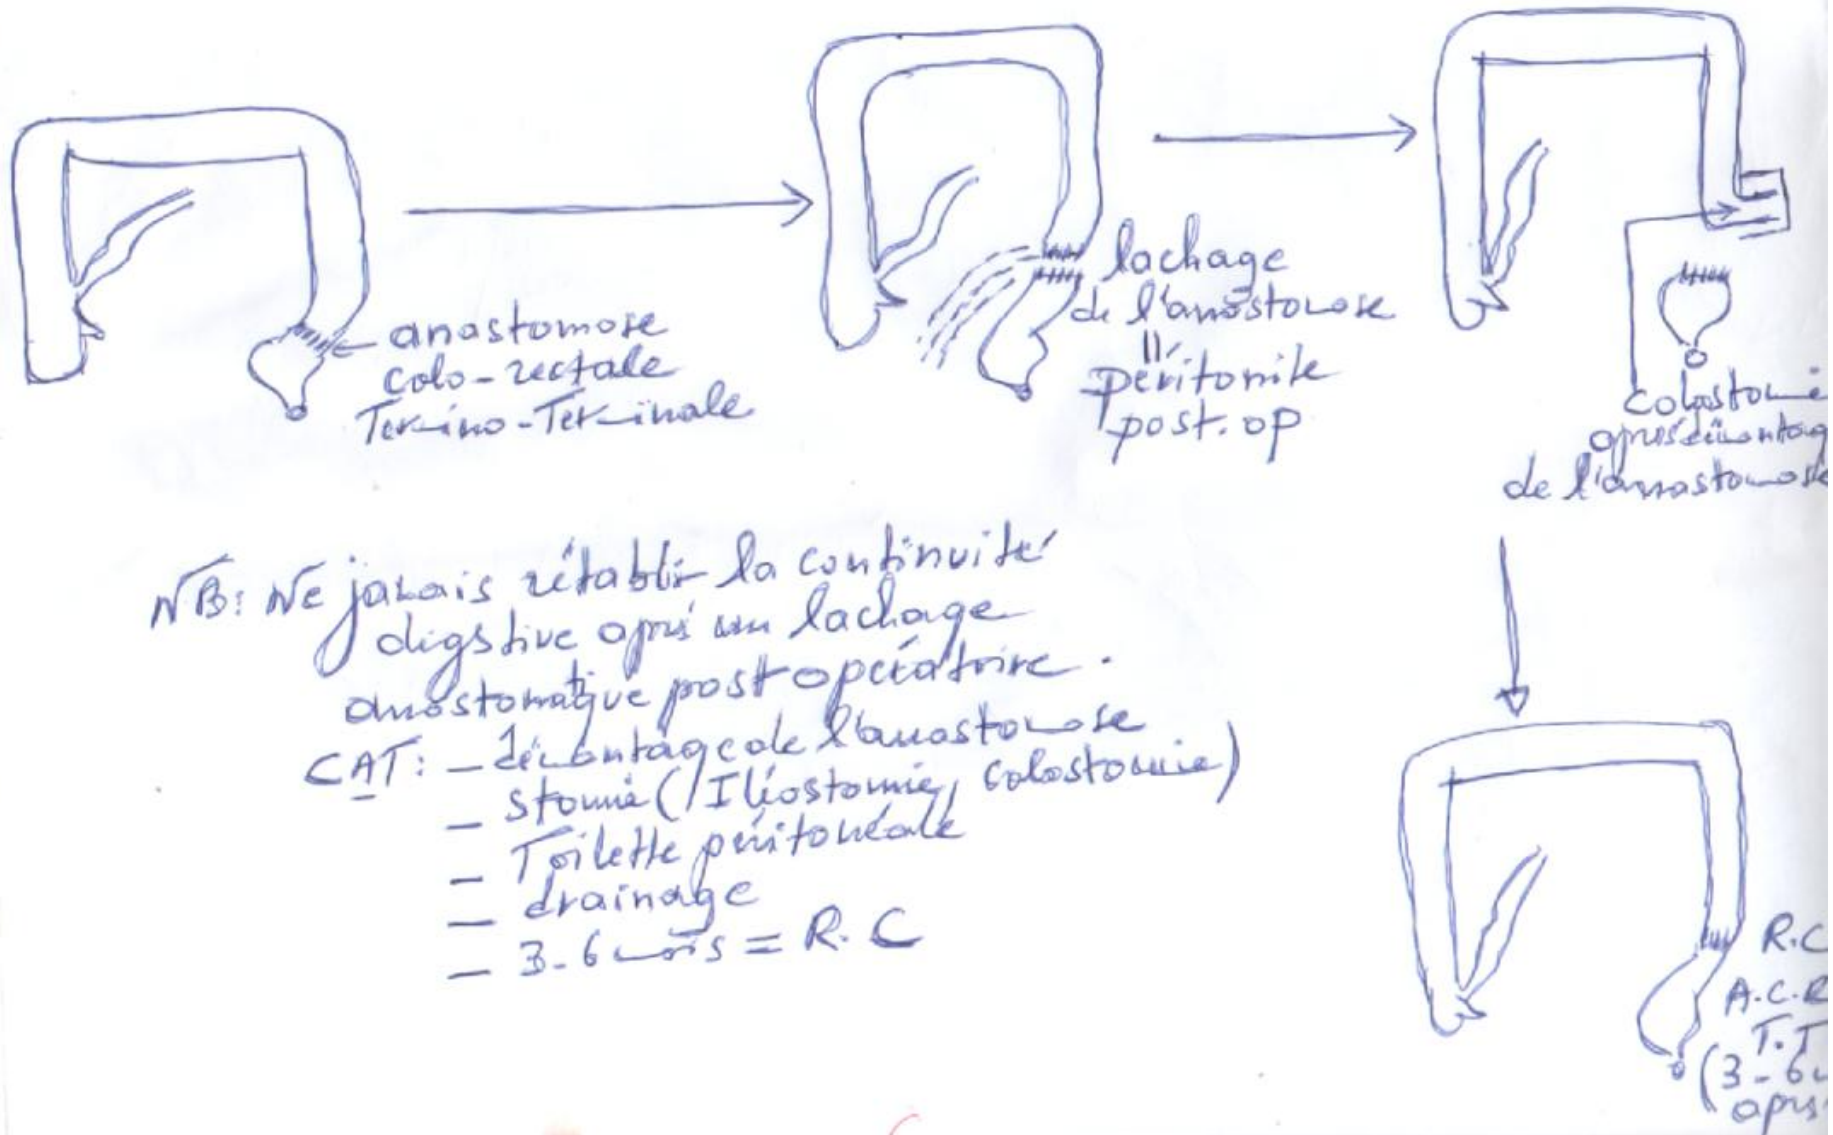 anastomose
colo-rectale
Termino-Terminale
lachage
de l'anastomose
péritonite
post.op
colostomie
après démontag
de l'anastomose
NB: Ne jamais rétablir la continuité
digstive après un lachage
anastomatique postopératoire.
CAT: - démontage de l'anastomose
- stomie (Iléostomie, colostomie)
- Toilette péritonéale
- drainage
- 3-6 mois = R.C
R.C
A.C.R
T.T
(3-6
après